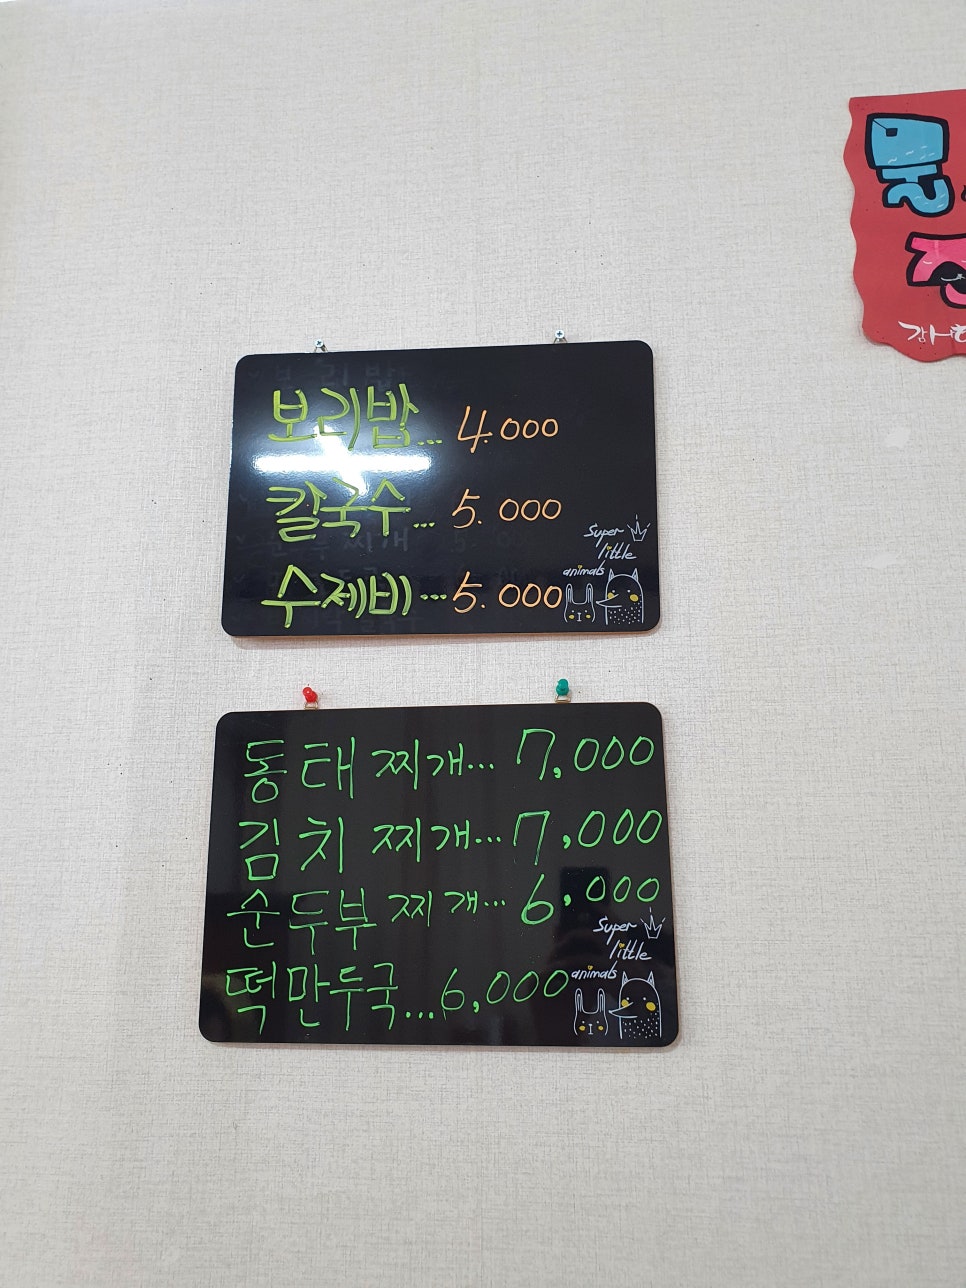 보리밥... 4.000
칼국수... 5.000
수제비... 5.000
Super
little
animals
동태 찌개... 7,000
김치 찌개... 7,000
순두부 찌개... 6,000
떡만두국... 6,000
Super
little
animals